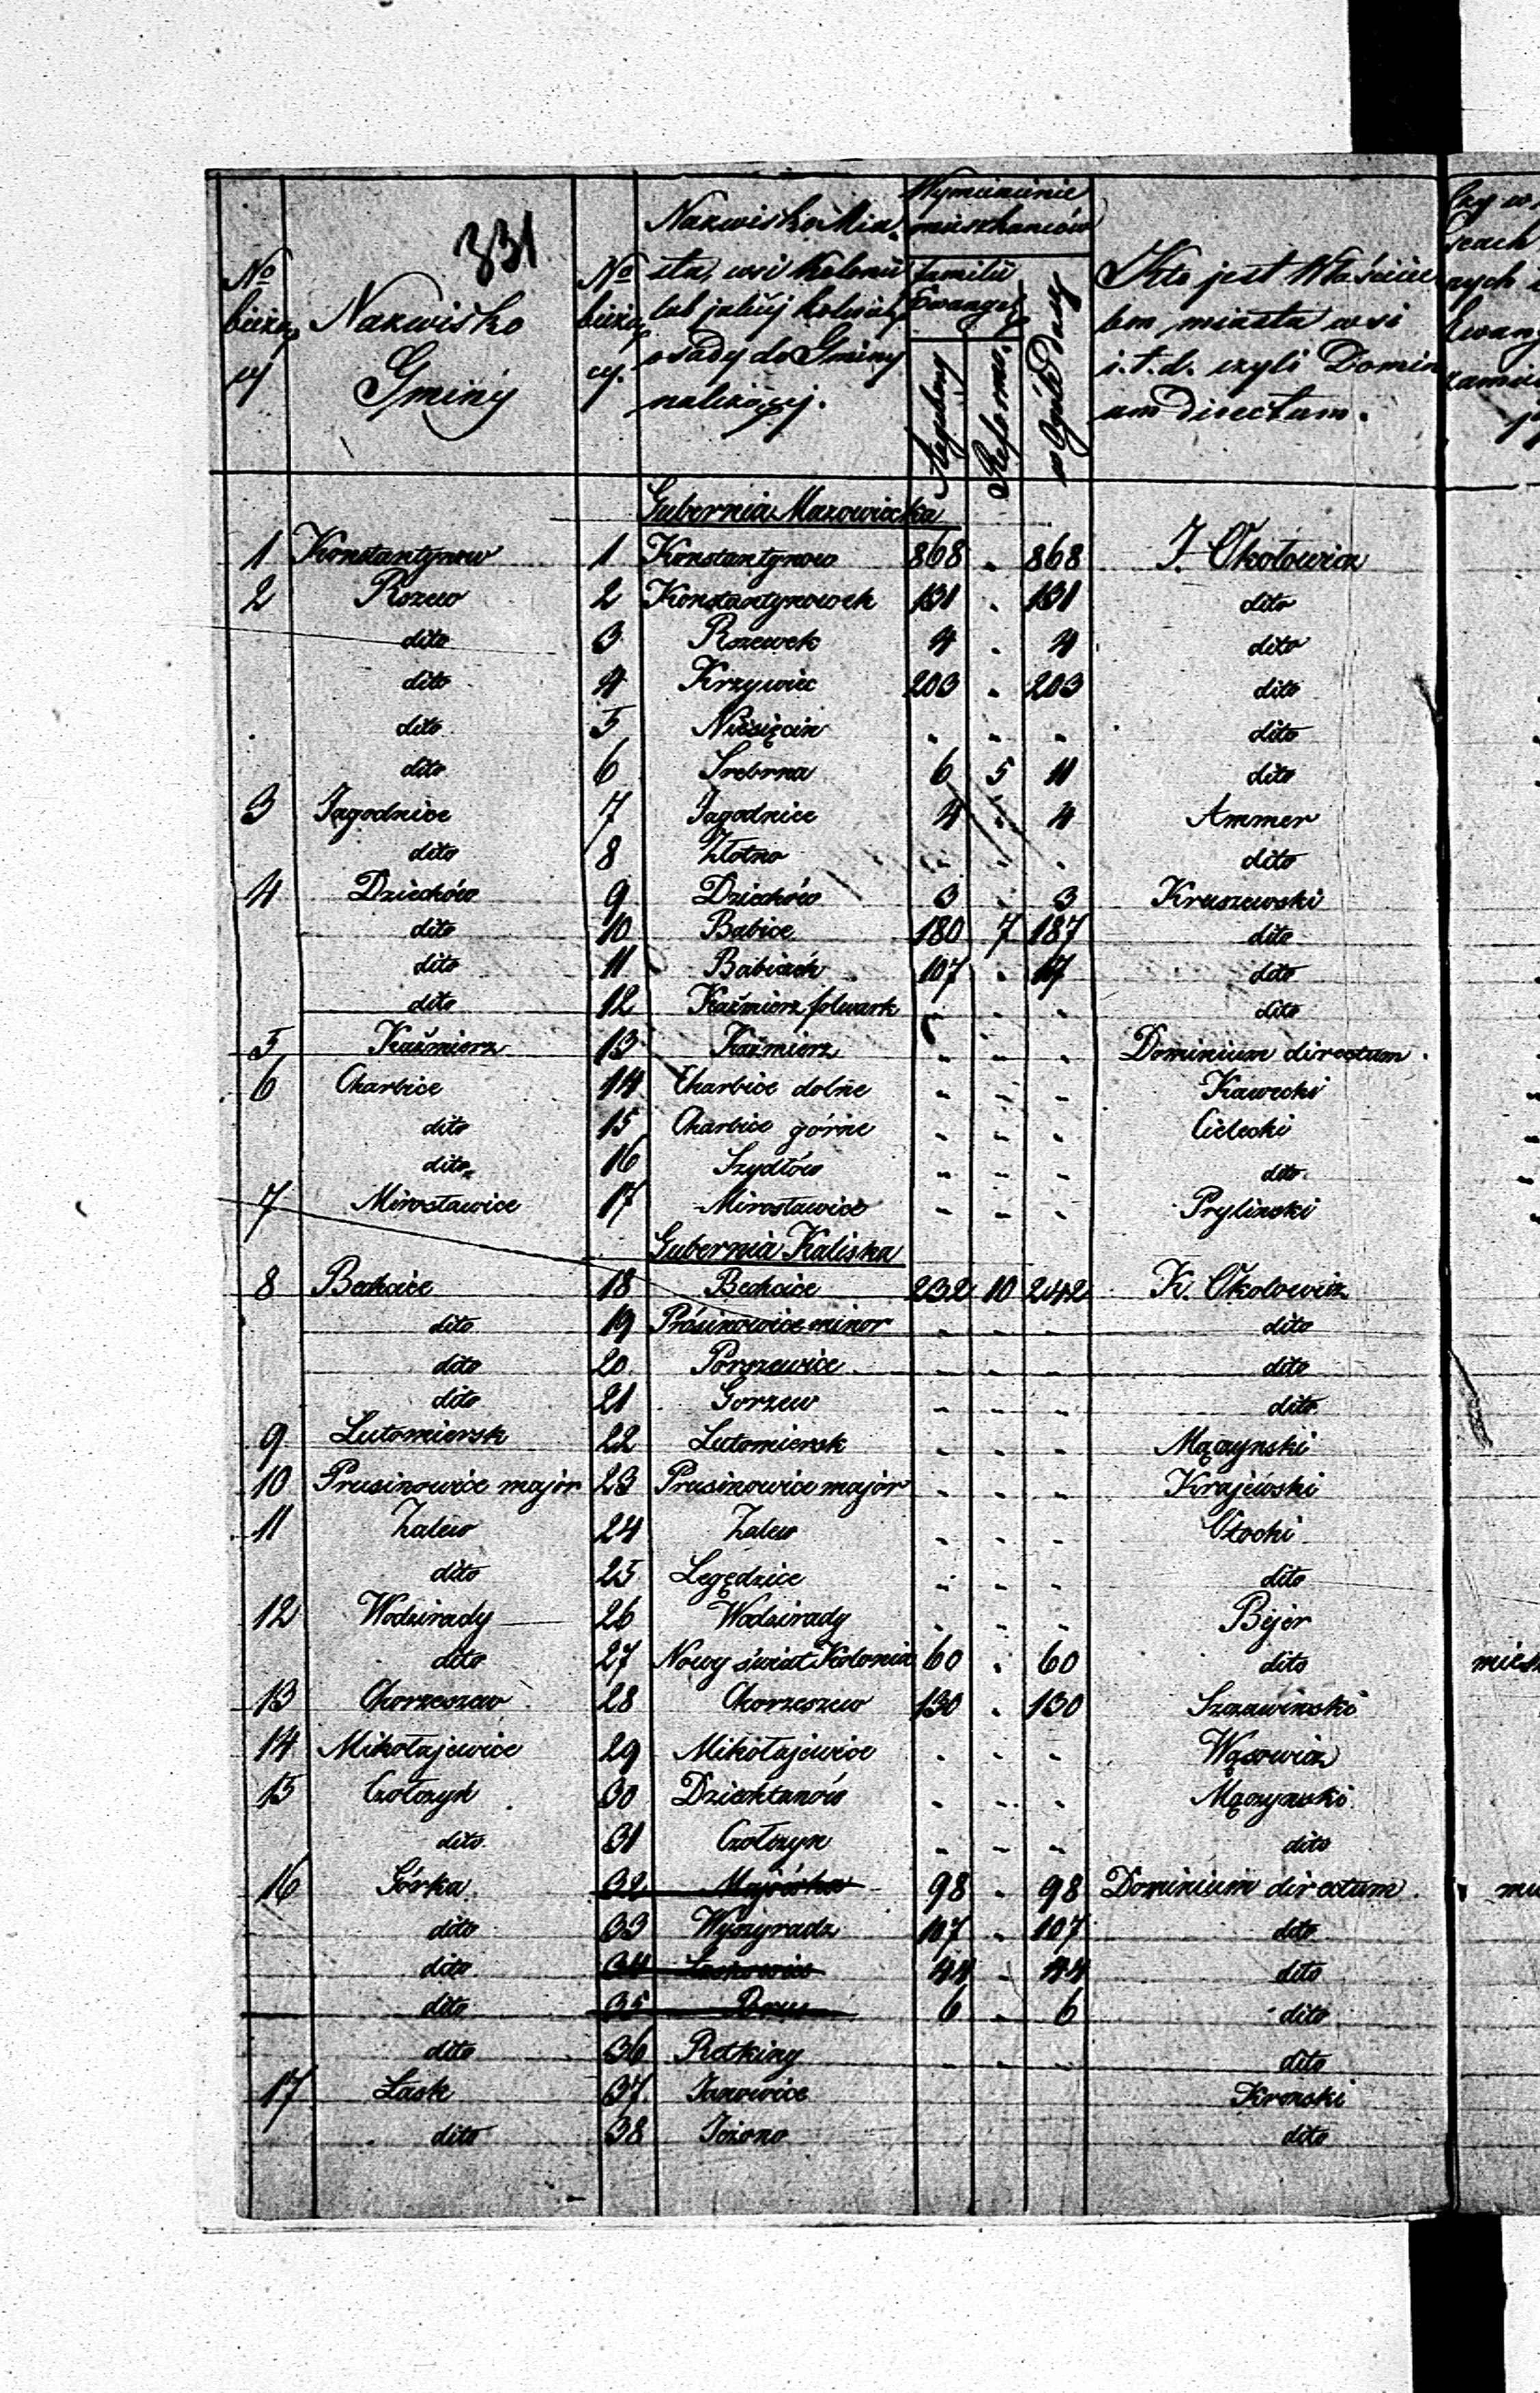 331
No bieżący
Nazwisko Gminy
No bieżący.
Nazwisko Mia-
sta, wsi Kolonii
lub jakiej kolwiek
osady do Gminy
należącej.
Wymienienie
mieszkańców
familii
Ewang.
Augsburg
Reformo.
w Ogóle Dusz
Kto jest Właścicie
lem miasta wsi
i.t.d. czyli Domin
um Directum.
Gubernia Mazowiecka
1 Konstantynow 1 Konstantynow 868 . 868 J. Okołowicz
2 Rszew 2 Konstantynowek 131 . 131 dito
dito 3 Rszewek 4 . 4 dito
dito 4 Krzywiec 203 . 203 dito
dito 5 Niesięcin - - - dito
dito 6 Srebrna 6 5 11 dito
3 Jagodnice 7 Jagodnice 4 . 4 Ammer
dito 8 Złotno - - - dito
4 Dziechów 9 Dziechów 3 . 3 Kruszewski
dito 10 Babice 180 7 187 dito
dito 11 Babiczki 107 . 107 dito
dito 12 Kaźmierz folwark - - - dito
5 Kaźmierz 13 Kaźmierz - - - Dominium directum.
6 Charbice 14 Charbice dolne - - - Kawecki
dito 15 Charbice górne - - - Cielecki
dito 16 Szydłów - - - dito
7 Mirosławice 17 Mirosławice - - - Prylinski
Gubernia Kaliska
8 Bechcice 18 Bechcice 232 10 242 K. Okołowicz
dito 19 Prusinowice minor - - - dito
dito 20 Porszewice - - - dito
dito 21 Gorzew - - - dito
9 Lutomiersk 22 Lutomiersk - - - Mączynski
10 Prusinowice major 23 Prusinowice major - - - Krajewski
11 Zalew 24 Zalew - - - Otocki
dito 25 Legędzice - - - dito
12 Wodzirady 26 Wodzirady - - - Bejer
dito 27 Nowy świat Kolonia 60 . 60 dito
13 Chorzeszew 28 Chorzeszew 130 . 130 Szczawinski
14 Mikołajewice 29 Mikołajewice - - - Wąsowicz
15 Czołczyn 30 Dziektanów - - - Mączynski
dito 31 Czołczyn - - - dito
16 Górka 32 Majówka 98 . 98 Dominium directum.
dito 33 Wyszyradz 107 . 107 dito
dito 34 44 . 44 dito
dito 35 6 . 6 dito
dito 36 Retkiny - - - dito
17 Łask 37 Janowice Kronski
dito 38 dito